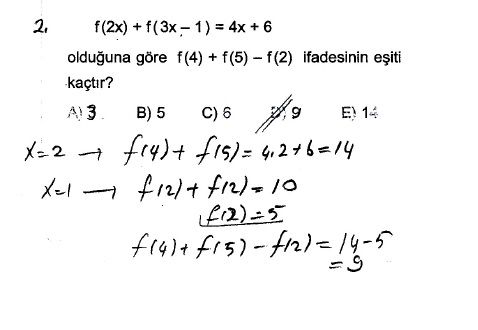 2. f(2x) + f(3x – 1) = 4x + 6
olduğuna göre f(4) + f(5) – f(2) ifadesinin eşiti
kaçtır?
A) 3 B) 5 C) 6 D) 9 E) 14
x=2 → f(4) + f(5) = 4.2+6=14
x=1 → f(2) + f(2) = 10
f(2) = 5
f(4) + f(5) – f(2) = 14-5
= 9